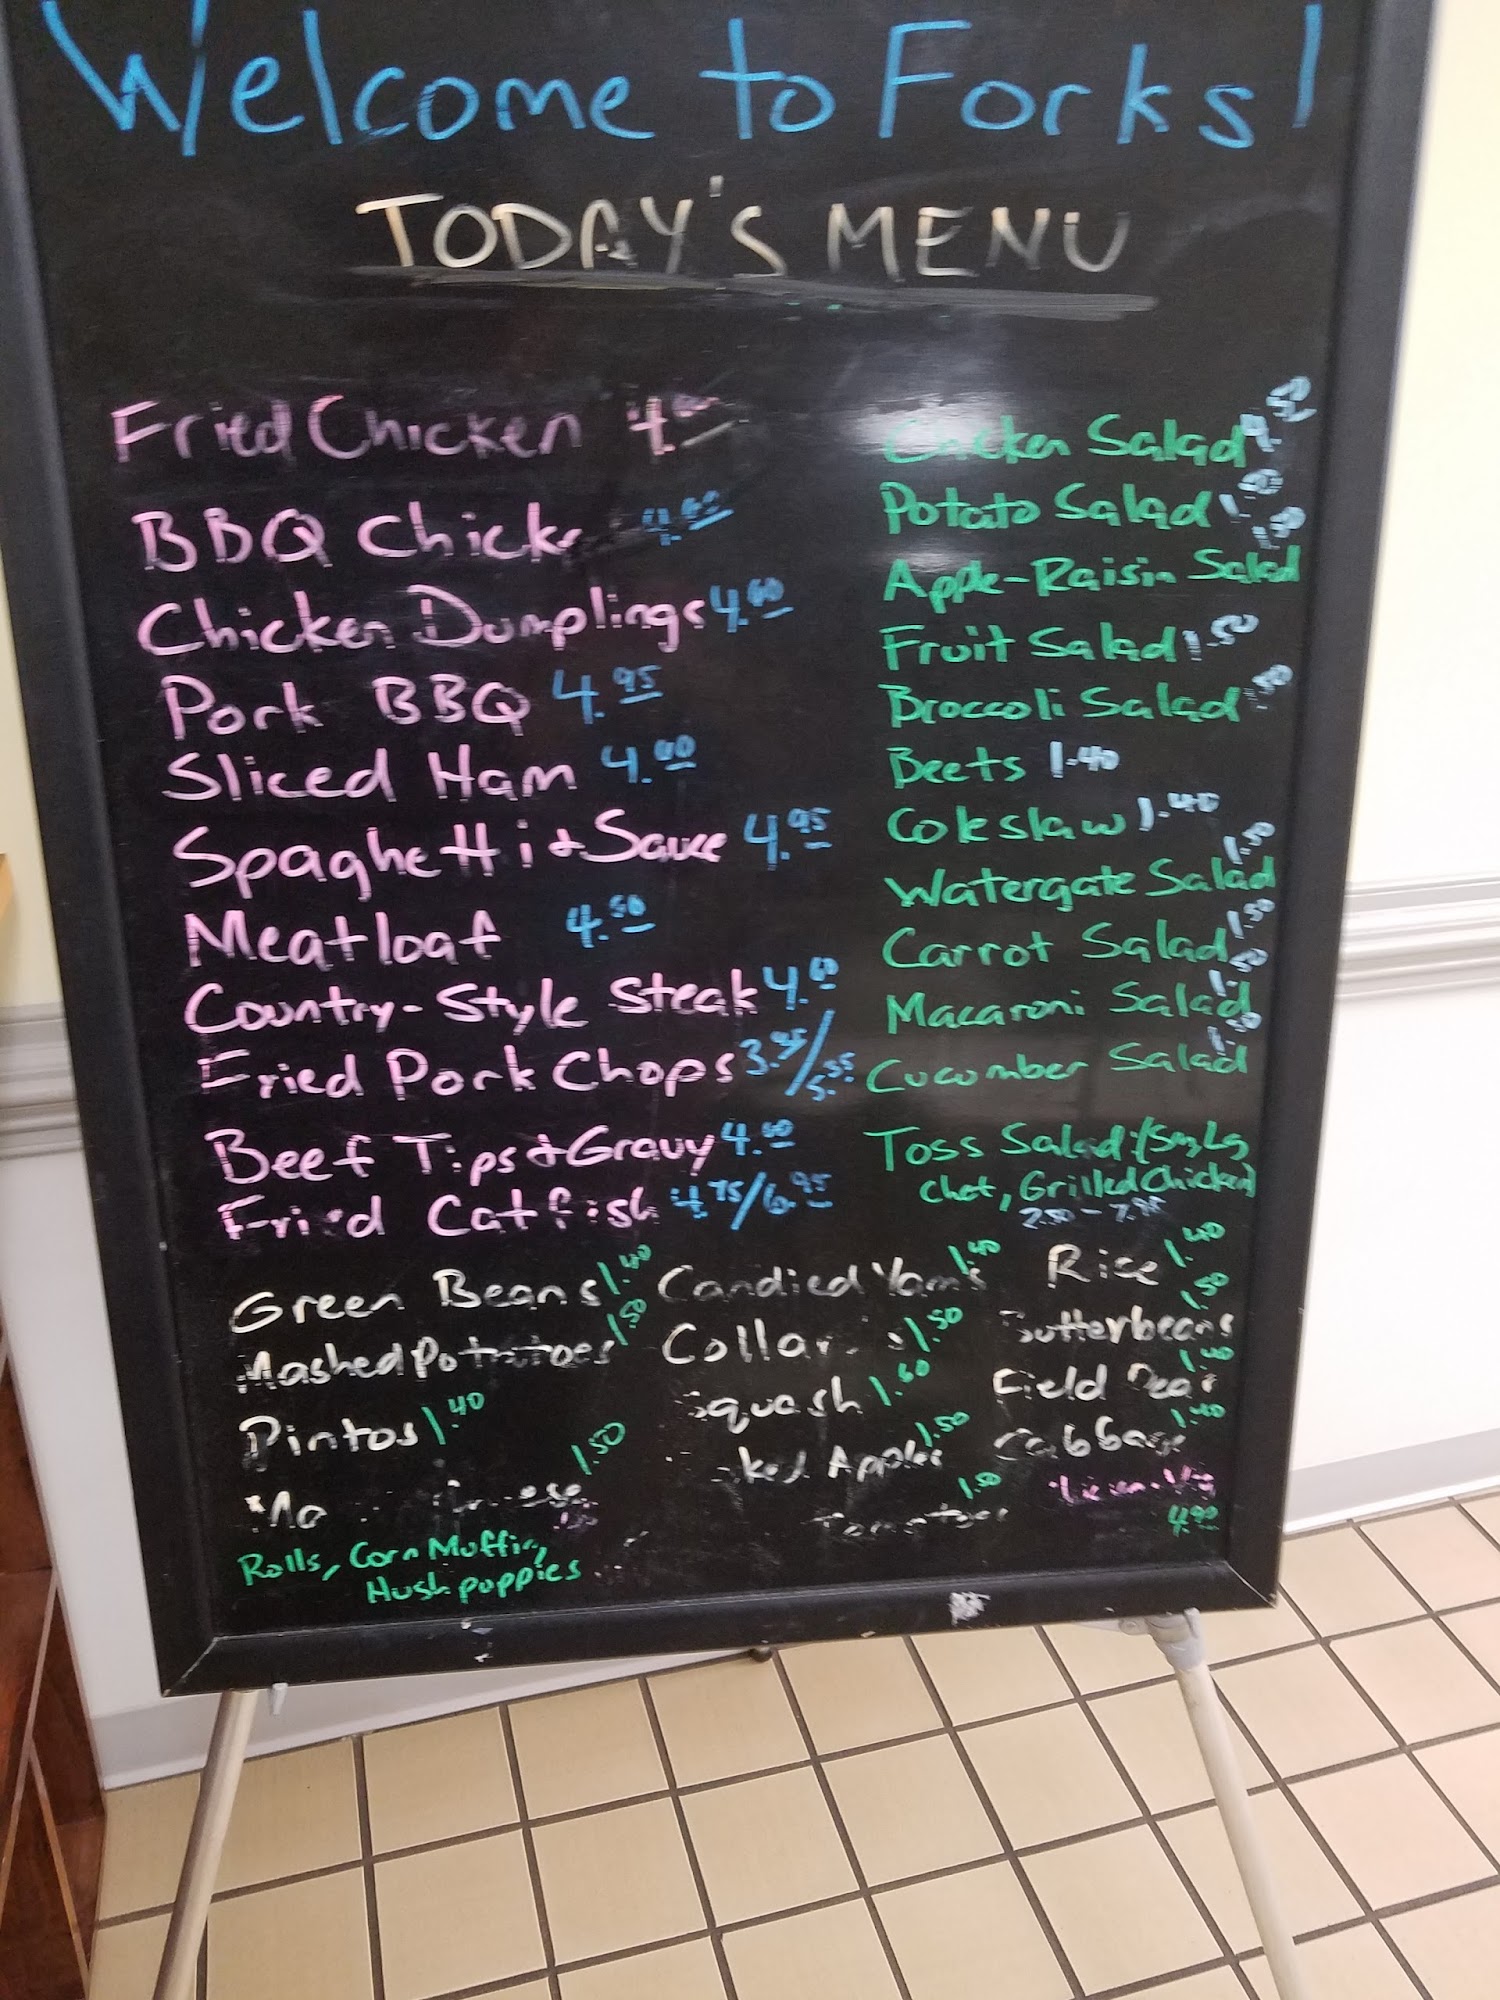 Welcome to Forks!
TODAY'S MENU
Fried Chicken 4.
BBQ Chick 4.60
Chicken Dumplings 4.60
Pork BBQ 4.95
Sliced Ham 4.00
Spaghetti + Sauce 4.95
Meatloaf 4.50
Country-Style Steak 4.60
Fried Pork Chops 3.95/5.55
Beef Tips + Gravy 4.00
Fried Catfish 4.75/6.95
Chicken Salad 4.50
Potato Salad 1.40
Apple-Raisin Salad 1.50
Fruit Salad 1.50
Broccoli Salad .50
Beets 1.40
Coleslaw 1.40
Watergate Salad 1.50
Carrot Salad 1.50
Macaroni Salad 1.50
Cucumber Salad 1.50
Toss Salad: (Sm, Lg
Chef, Grilled Chicken)
2.50 - 7.95
Green Beans 1.40
Mashed Potatoes 1.50
Pintos 1.40
1.50
Rolls, Corn Muffin,
Hushpuppies
Candied Yams 1.40
1.50
Squash 1.60
Apples 1.50
Tomatoes 1.50
Rice 1.40
Butterbeans 1.50
Field Peas 1.40
Cabbage 1.40
4.90